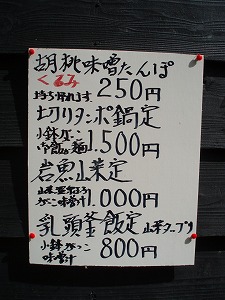 胡桃味噌たんぽ
くるみ
持ち帰れます 250円
切りタンポ鍋定
小鉢 ガッコ
今飯 麺 1.500円
岩魚山菜定
がっこ味噌汁 1.000円
乳頭釜飯定 山菜タップリ
小鉢 がっこ
味噌汁 800円